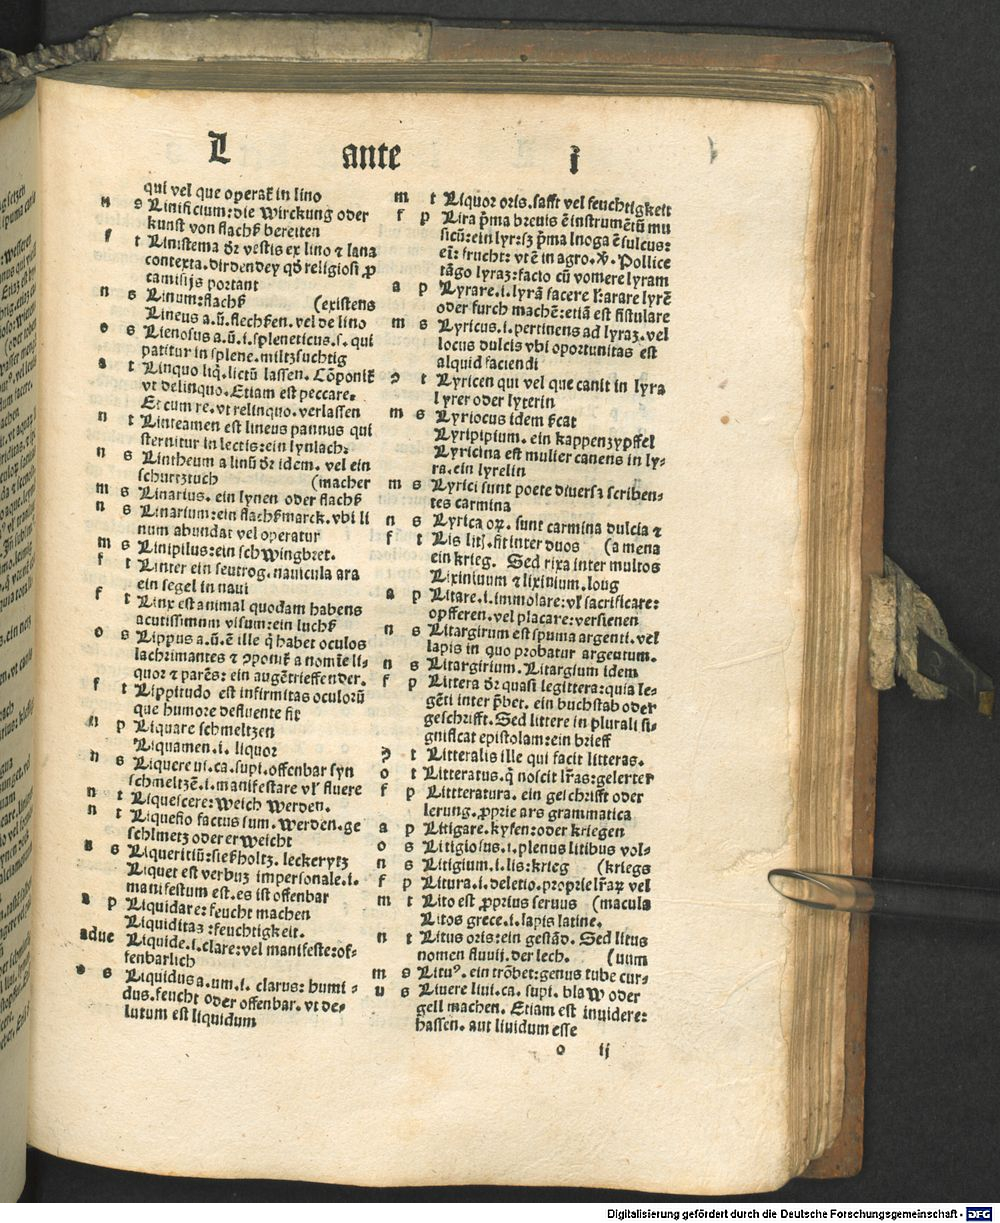 L ante i
qui vel que operat᷑ in lino
n s Linificium: die wirckung oder
kunst von flachß bereiten
f t Linistema d᷑r vestis ex lino ⁊ lana
contexta. dirdendey qd̄ religiosi ꝓ
camisijs portant
n s Linum: flachß (existens
Lineus a.ū. flechßen. vel de lino
o s Lienosus a.ū.i. spleneticus.s. qui
patitur in splene. miltzsuchtig
a t Linquo liq̄. lictū lassen. Cōponit᷑
vt delinquo. Etiam est peccare.
Et cum re. vt relinquo. verlassen
n t Linteamen est lineus pannus qui
sternitur in lectis: ein lynlach:
n s Lintheum a linū d᷑r idem. vel ein
schurtztuch (macher
m s Linarius. ein lynen oder flachß
n s Linarium: ein flachßmarck. vbi li
num abundat vel operatur
m s Linipilus: ein schwingbret.
f t Linter ein seutrog. nauicula ara
ein segel in naui
f t Linx est animal quodam habens
acutissimum visum: ein luchß
o s Lippus a.ū. ē ille q̄ habet oculos
lachrimantes ⁊ ꝯponit᷑ a nomīe li-
quor ⁊ parēs: ein augētrieffender.
f t Lippitudo est infirmitas oculorū
que humore defluente fit
n p Liquare schmeltzen
Liquamen.i. liquor
n s Liquere ui.ca.supi. offenbar syn
schmeltzē.i. manifestare vl' fluere
n t Liquescere: weich werden.
n t Liquefio factus sum. werden. ge
schlmetz oder erweicht
n s Liqueritiū: sießholtz. leckerytz
Liquet est verbuꝫ impersonale.i.
manifestum est. es ist offenbar
a p Liquidare: feucht machen
Liquiditaꝫ: feuchtigkeit.
adue Liquide.i. clare: vel manifeste: of-
fenbarlich
o s Liquidus a.um.i. clarus: humi-
dus. feucht oder offenbar. vt de-
lutum est liquidum
m t Liquor oris. safft vel feuchtigkeit
f p Lira p̄ma breuis ē instrumētū mu
sicū: ein lyr: sꝫ p̄ma lnoga ē sulcus:
ei: frucht: vt ē in agro. v̄. Pollice
tāgo lyraꝫ: facto cū vomere lyram
a p Lyrare.i. lyrā facere l: arare lyrē
oder furch machē: etiā est fistulare
m s Lyricus.i. pertinens ad lyraꝫ. vel
locus dulcis vbi oportunitas est
alquid faciendi
ꝯ t Lyricen qui vel que canit in lyra
lyrer oder lyterin
m s Lyriocus idem ß̄cat
Lyripipium. ein kappenzypffel
Lyricina est mulier canens in ly-
ra. ein lyrelin
m s Lyrici sunt poete diuersꝫ scriben-
tes carmina
n s Lyrica oꝝ. sunt carmina dulcia ⁊
f t Lis litꝭ. fit inter duos (a mena
ein krieg. Sed rixa inter multos
Lixiniuum ⁊ lixinium. loug
a p Litare.i. immolare: vl' sacrificare:
opfferen. vel placare: versienen
n s Litargirum est spuma argenti. vel
lapis in quo probatur argentum.
n s Litargirium. Litargium idem
f p Littera d᷑r quasi legittera: quia le-
gēti inter p̄bet. ein buchstab oder
geschrifft. Sed littere in plurali si-
gnificat epistolam: ein brieff
ꝯ t Litteralis ille qui facit litteras.
o t Litteratus. q̄ noscit lr̄as: gelerter
f p Littteratura. ein geschrifft oder
lerung. ꝓprie ars grammatica
a p Litigare. kyfen: oder kriegen
o s Litigiosus.i. plenus litibus vol-
n s Litigium.i. lis: krieg (kriegs
f p Litura.i. deletio. proprie lr̄aꝝ vel
m t Lito est ꝓprius seruus (macula
Litos grece.i. lapis latine.
n t Litus oris: ein gestād. Sed litus
nomen fluuij. der lech. (uum
m s Litu⁹. ein trōbet: genus tube cur-
u s Liuere liui.ca. supi. blaw oder
gell machen. Etiam est inuidere:
hassen. aut liuidum esse
o ij
Digitalisierung gefördert durch die Deutsche Forschungsgemeinschaft - DFG